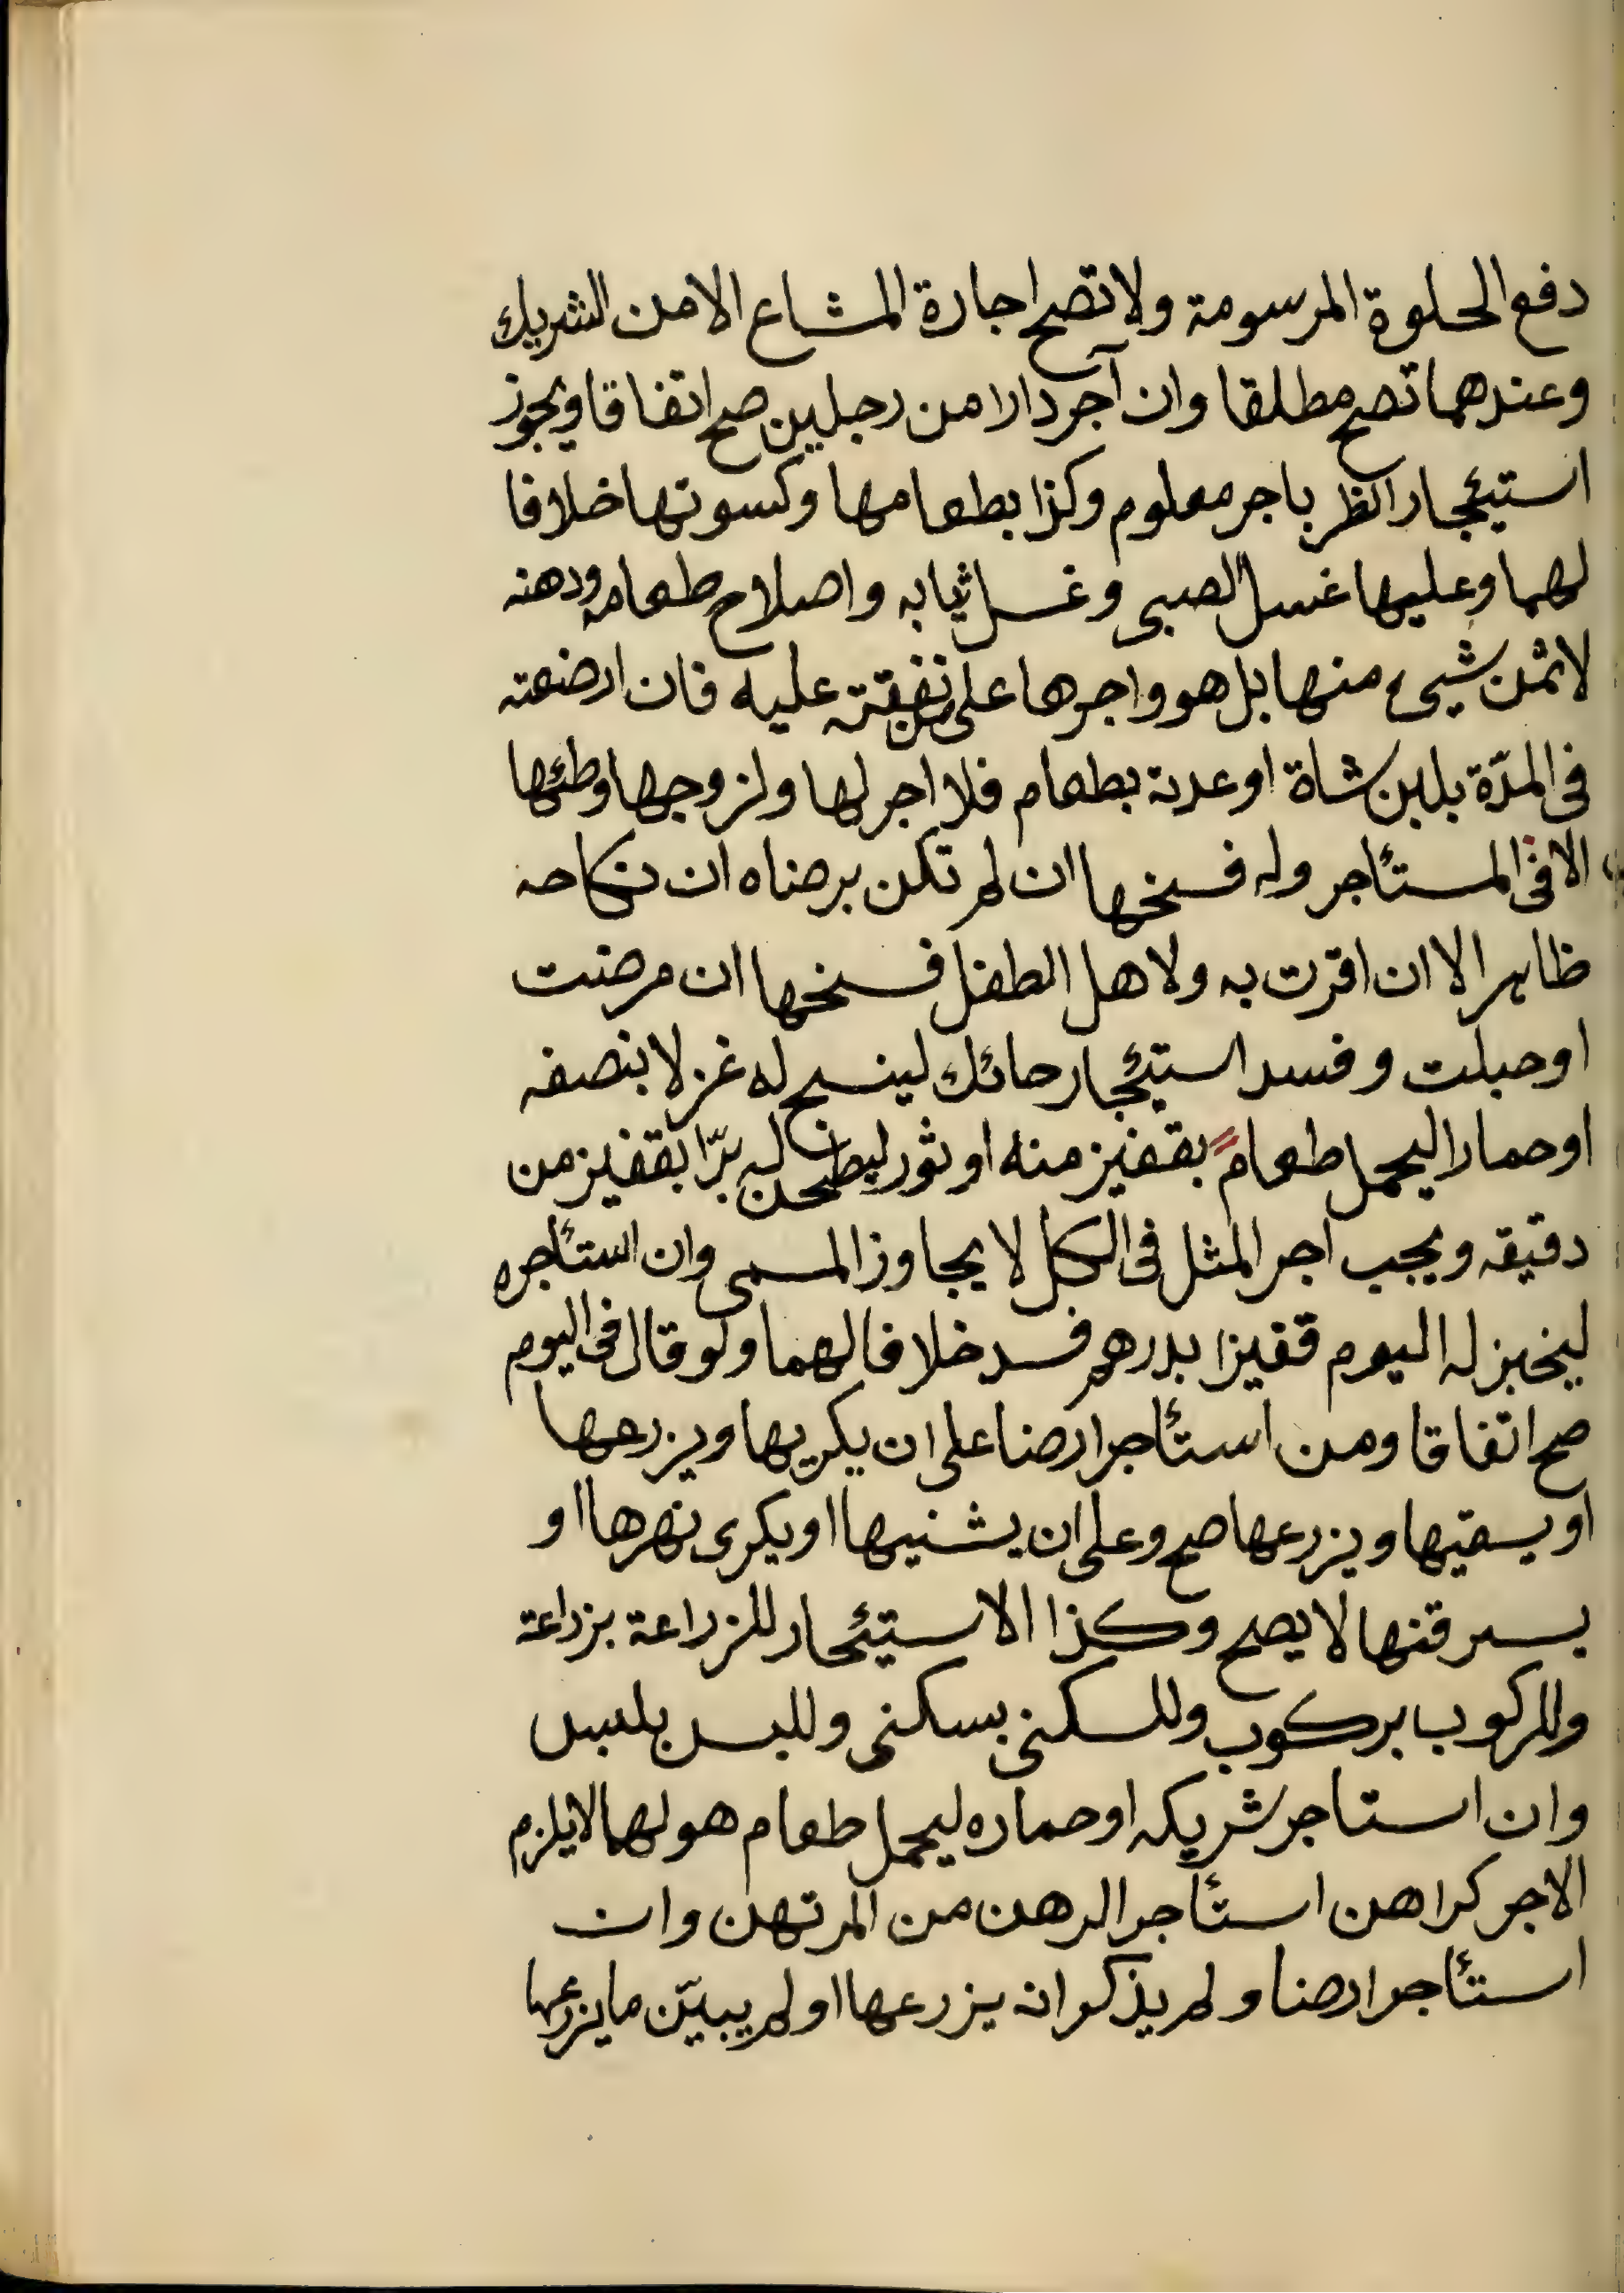 دفع الحلوة المرسومة ولا تصح اجارة المشاع الا من الشريك
وعندهما تصح مطلقا وان آجر دارا من رجلين صح اتفاقا ويجوز
استيئجار الظر باجر معلوم وكذا بطعامها وكسوتها خلافا
لهما وعليها غسل الصبى وغسل ثيابه واصلاح طعامه ودهنه
لا ثمن شيئ منها بل هو واجرها على من نفقته عليه فان ارضعته
فى المدّة بلبن شاة او غدته بطعام فلا اجر لها ولزوجها وطئها
الا فى المستأجر وله فسخها ان لم تكن برضاه ان نكاحه
ظاهرا لا ان اقرت به ولاهل الطفل فسخها ان مرضت
او حبلت وفسد استيئجار حائك لينسج له غزلا بنصفه
او حمارا ليحمل طعاماً بقفيز منه او ثور ليطحن له برّا بقفيز من
دقيقه ويجب اجر المثل فى الكل لا يجاوز المسمى وان استأجره
ليخبز له اليوم قفيزا بدرهم فسد خلافا لهما ولو قال فى اليوم
صح اتفاقا ومن استأجر ارضا على ان يكريها ويزرعها
او يسقيها ويزرعها صح وعلى ان يثنيها او يكرى نهرها او
يسرقنها لا يصح وكذا الاستيئجار للزراعة بزراعة
وللركوب بركوب وللسكنى بسكنى وللبس بلبس
وان استاجر شريكه او حماره ليحمل طعام هو لهما لا يلزم
الاجر كراهن استأجر الرهن من المرتهن وان
استأجر ارضا ولم يذكر انه يزرعها او لم يبيّن ما يزرعها